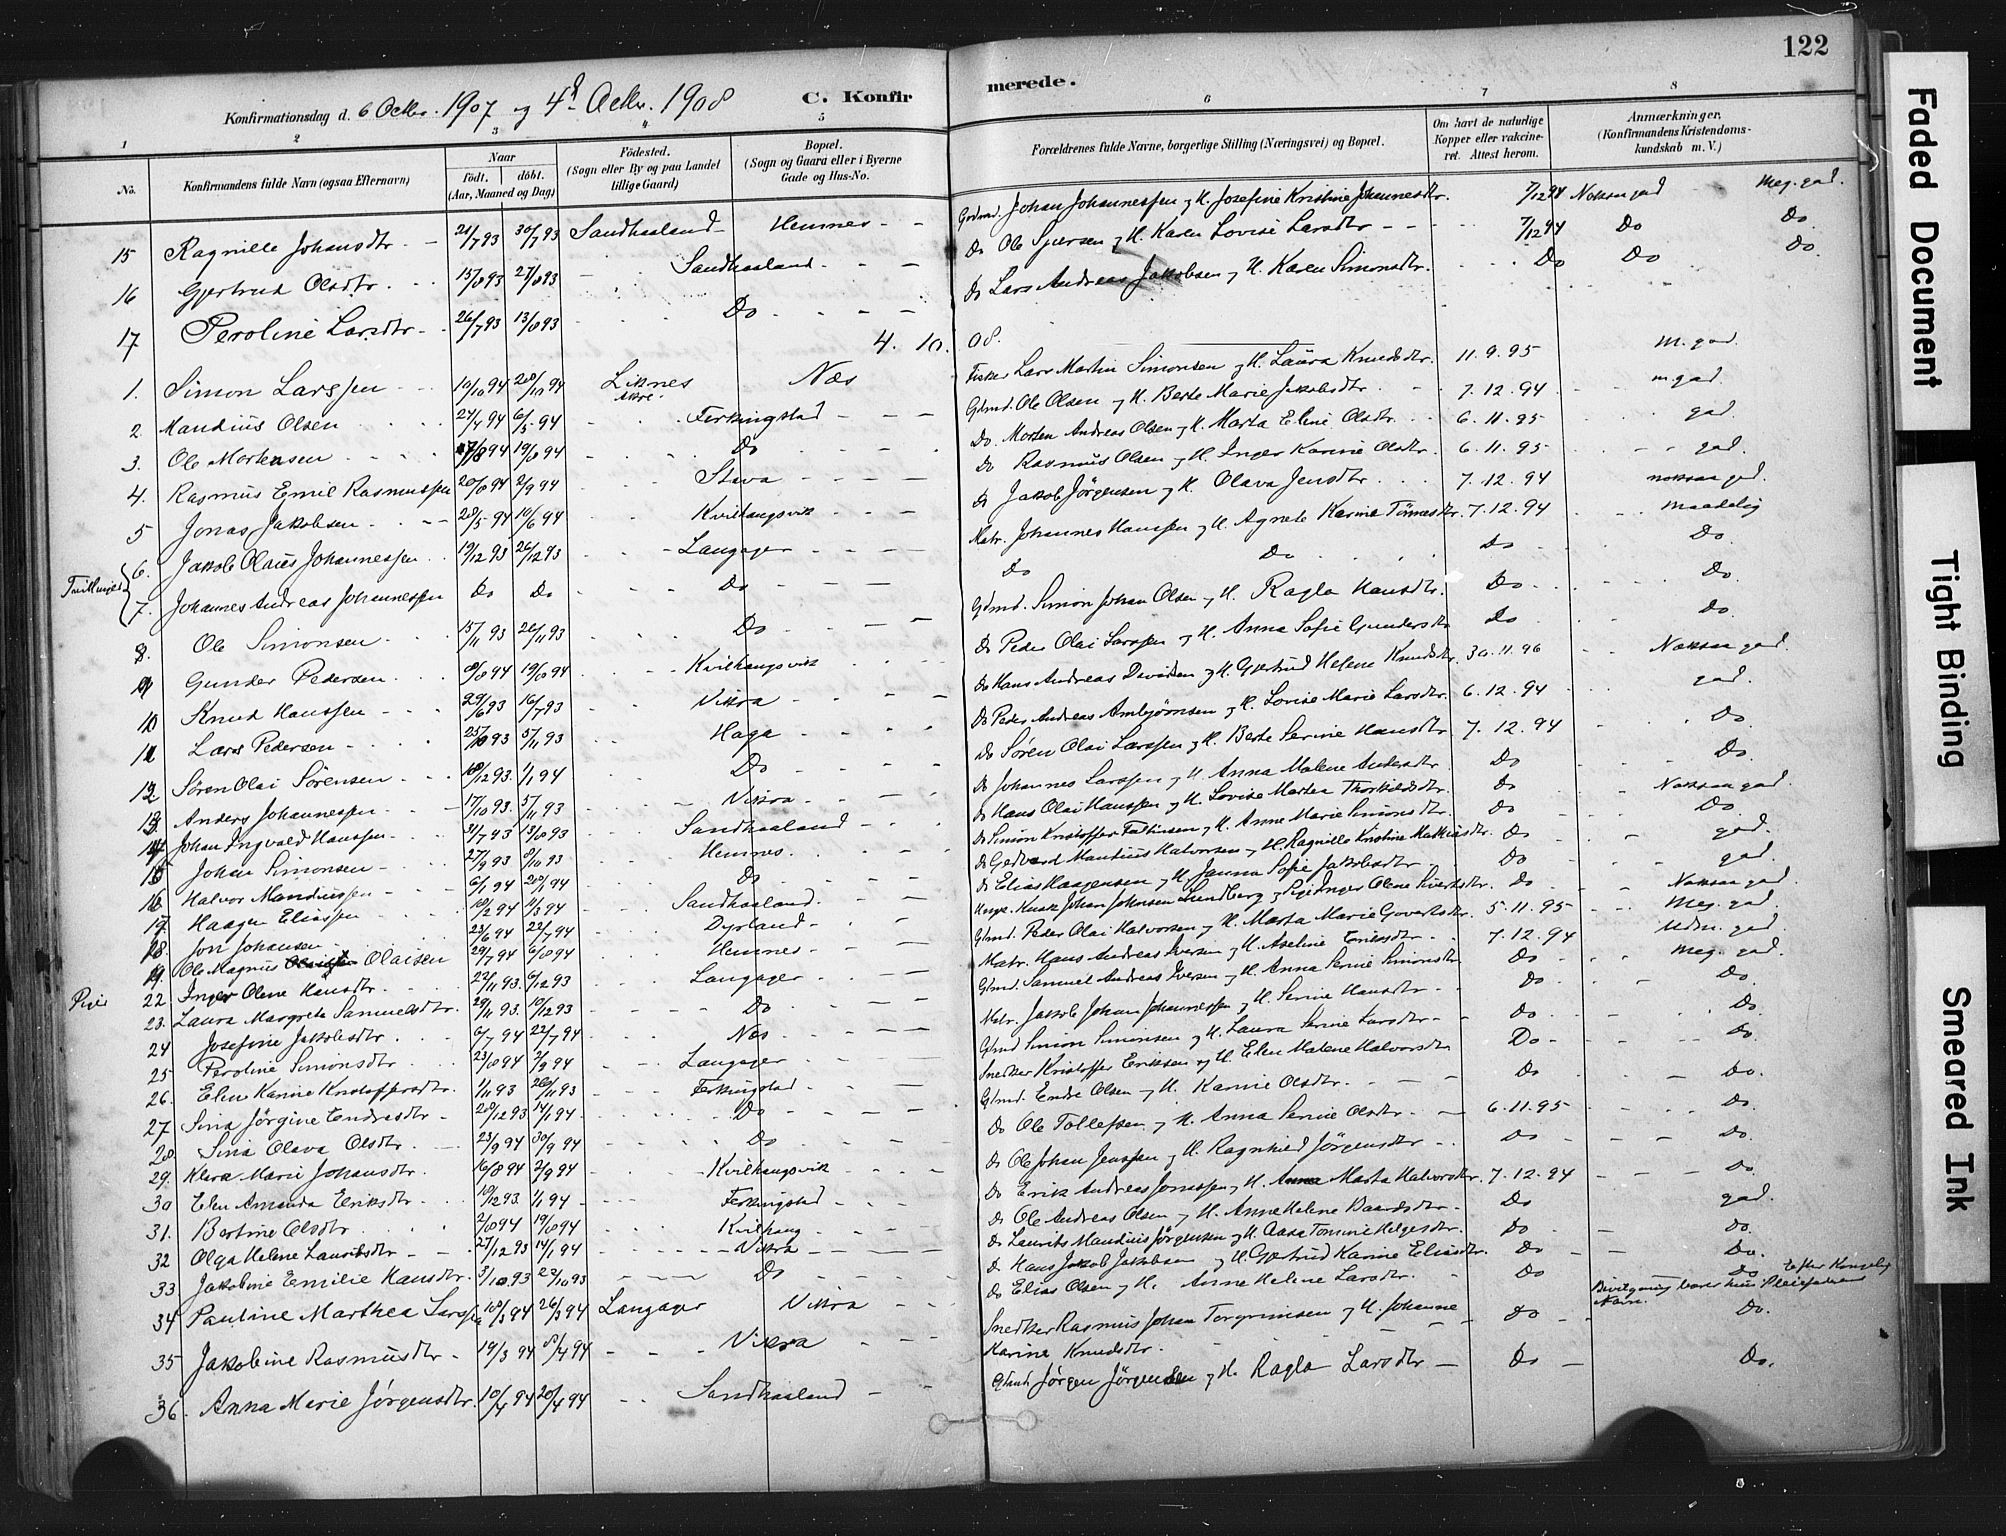 122
Konfirmationsdag d. 6 Octbr. 1907 og 4d Octbr. 1908 C. Konfir merede.
1 2 3 4 5 6 7 8
No. Konfirmandens fulde Navn (ogsaa Efternavn) Naar Födt. döbt. (Aar, Maaned og Dag) Födested. (Sogn eller By og paa Landet tillige Gaard) Bopæl. (Sogn og Gaard eller i Byerne Gade og Hus-No. Forældrenes fulde Navne, borgerlige Stilling (Næringsvei) og Bopæl. Om havt de naturlige Kopper eller vakcineret. Attest herom. Anmærkninger, (Konfirmandens Kristendomskundskab m. V.)
15 Ragnille Johansdtr 21/7 93 30/7 93 Sandhaaland Hemnes Grdmd. Johan Johannessen og H. Josefine Kristine Johannesdtr. 7/12 94 Noksaa god Meg. god.
16 Gjertrud Olsdtr. 15/8 93 27/8 93 Sandhaaland Do Ole Sjursen og H. Karen Lovise Larsdtr 7/12 94 Do Do
17 Peroline Larsdtr 26/7 93 13/8 93 Do Do Lars Andreas Jakobsen og H. Karen Simonsdtr. Do Do Do
4. 10. 08.
1. Simon Larssen 10/10 94 28/10 94 Liknes Akre. Næs Fisker Lars Martin Simonsen og H. Laura Knudsdtr. 11.9.95 M. god.
2. Mandius Olsen 24/4 94 6/5 94 Ferkingstad Gdmd. Ole Olsen og H. Berte Marie Jakobsdtr 7.12.94 m. god.
3. Ole Mortensen 7/8 94 19/8 94 Do Do. Morten Andreas Olsen og H. Marta Eline Olsdtr. 6.11.95 god
4. Rasmus Emil Rasmussen 20/8 94 2/9 94 Stava Do Rasmus Olsen og H. Inger Karine Olsdtr. 6.11.95 god.
5 Jonas Jakobsen 28/5 94 10/6 94 Kvilhaugsvik Do Jakob Jörgensen og H. Olava Jensdtr. 7.12.94 noksaa god.
Tvillinger
6. Jakob Olaus Johannessen 19/12 93 26/12 93 Langager Matr. Johannes Hanssen og H. Agnete Karine Tönnesdtr. 7.12.94 maadelig
7. Johannes Andreas Johannessen Do Do Do Do Do Do Do.
8. Ole Simonsen 15/11 93 26/11 93 Do Gdmd. Simon Johan Olsen og H. Ragla Hansdtr. Do Do.
9 Gunder Pedersen 8/8 94 19/8 94 Kvilhaugsvik Do Peder Olai Larssen og H. Anna Sofie Gundersdtr Do Do.
10 Knud Hanssen 29/6 93 16/7 93 Vikra Do Hans Andreas Davidsen og H. Gjertrud Helene Knudsdtr. 30.11.96 Noksaa god.
11 Lars Pedersen 25/10 93 5/11 93 Haga Do Peder Andreas Ambjörnsen og H. Lovise Marie Larsdtr. 6.12.94 god.
12 Sören Olai Sörensen 18/12 93. 1/1 94 Do Do Sören Olai Larssen og H. Berte Serine Hansdtr 7.12.94 Do
13. Anders Johannessen 17/10 93. 5/11 93 Vikra Do Johannes Larssen og H. Anna Malene Andersdtr Do Do.
14 Johan Ingvald Hanssen 31/7 93 13/8 93 Sandhaaland Do Hans Olai Hanssen og H. Lovise Martea Thorkildsdtr. Do Noksaa god.
15 Johan Simonsen 27/9 93 8/10 93 Hemnes. Do Simon Kristoffer Simonsen og H. Anne Marie Simonsdtr. Do Do
16. Halvor Mandiussen 6/1 94 28/1 94 Do Do Gedvard Mandius Halvorsen og H. Ragnille Kristine Mathiasdtr. Do god.
17. Haagen Eliassen 18/2 94 11/3 94 Sandhaaland. Do Elias Haagensen og H. Janna Sofie Jakobsdtr Do god.
18. Jon Johansen 23/6 94 22/7 94 Dyrland Johan Johnsen Sundberg og Pige Inger Olene Sivertsdtr. Do Noksaa god.
19. Ole Magnus Olaisen 29/7 94 6/8 94 Hemnes Gdmd. Peder Olai Halvorsen og H. Marta Marie Govertsdtr. 5.11.95 Meg. god.
Piger 22. Inger Olene Hansdtr. 22/11 93. 6/12 93 Langager Matr. Hans Andreas Iversen og H. Aseline Eriksdtr 7.12.94 Udm. god.
23. Laura Margrete Samuelsdtr. 29/11 93. 10/12 93 Do Gdmd. Samuel Andreas Iversen og H. Anna Serine Simonsdtr Do Meg. god.
24 Josefine Jakobsdtr. 6/7 94 22/7 94 Næs Matr. Jakob Johan Johannessen og H. Serine Hansdtr Do Do.
25 Peroline Simonsdtr 23/8 94 2/9 94 Langager Gdmd Simon Simonsen og H. Laura Serine Larsdtr Do Do
26. Elen Karine Kristoffersdtr. 1/11 93 26/11 93 Ferkingstad Snedker Kristoffer Eriksen og H. Elen Malene Halvorsdtr Do Do
27 Sina Jörgine Endresdtr 28/12 93 14/1 94 Do Gdmd. Endre Olsen og H. Karine Olsdtr. Do Do.
28 Sina Olava Olsdtr. 23/9 94 30/9 94 Do Do Ole Tollefsen og H. Anna Serine Olsdtr. 6.11.95 Do.
29. Klara Marie Johansdtr 16/8 94 2/9 94 Kvilhaugsvik Do Ole Johan Jenssen og H. Ragnhild Jörgensdtr Do Do.
30 Elen Amanda Eriksdtr 10/12 93. 1/1 94 Ferkingstad Do Erik Andreas Jonassen og H. Marta Halvorsdtr. 7.12.94 Do.
31. Bertine Olsdtr 2/8 94 19/8 94 Kvilhaug Do Ole Andreas Olsen og H. Anne Helene Baardsdtr Do god.
32 Olga Helene Lauritsdtr 27/12 93 14/1 94 Vikra Do Laurits Mandius Jörgensen og H. Aasa Tomine Helgesdtr. Do Do.
33 Jakobine Emilie Hansdtr. 3/10 93 22/10 93 Do Do. Hans Jakob Jakobsen og H. Gjertrud Karine Eliasdtr. Do Do.
34 Pauline Marthea Larssen 18/3 94 26/3 94 Langager Vikra Do Elias Olsen og H. Anne Helene Larsdtr. Do Do Efter Kongelig Bevilgning bærer hun Pleiefaderens Navn.
35 Jakobine Rasmusdtr 19/3 94 8/4 94 Vikra Snedker Rasmus Johan Torgrimsen og H. Johanne Karine Knudsdtr. Do Do.
36. Anna Marie Jörgensdtr. 10/4 94 20/4 94 Sandhaaland Gdmd. Jörgen Jörgensen og H. Ragla Larsdtr Do Do.
Faded Document
Tight Binding
Smeared Ink